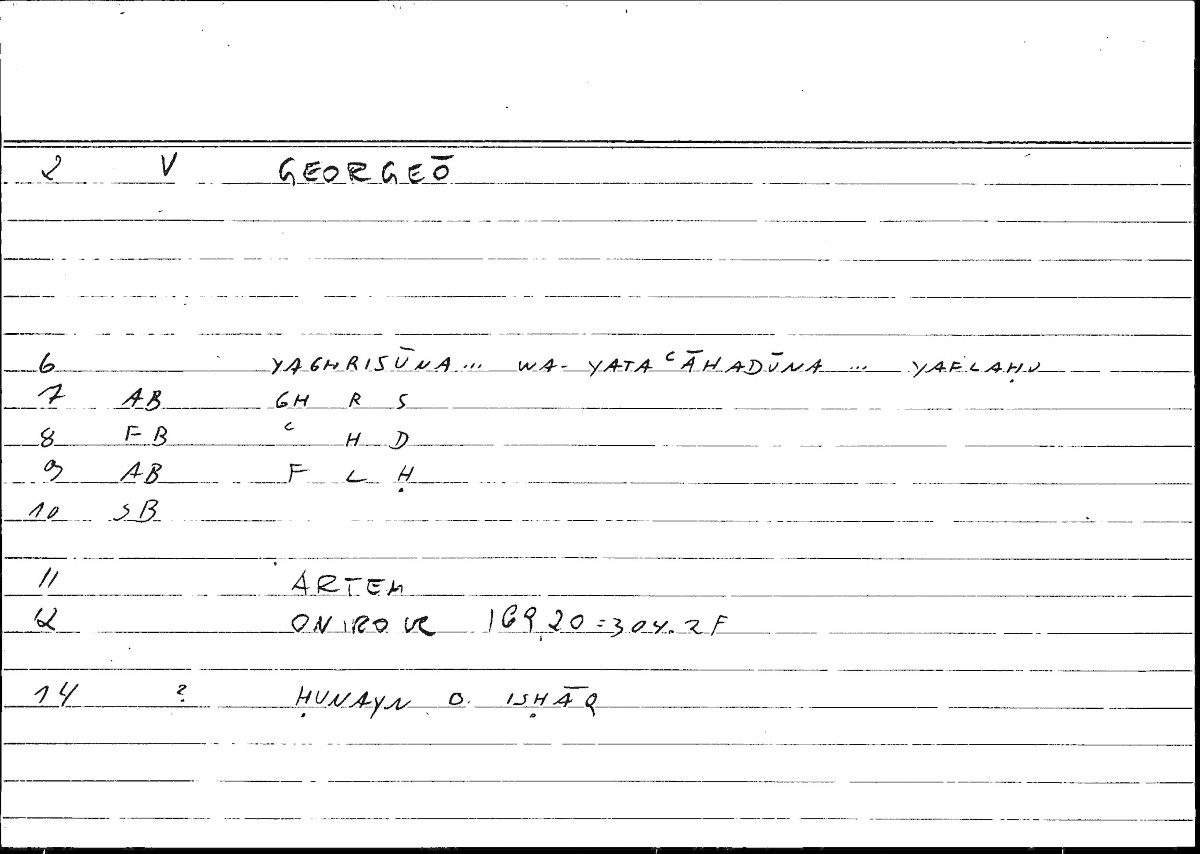 2 V GEORGEŌ
6 YAGHRISŪNA... WA- YATA ᶜĀHADŪNA ... YAFLAḤU
7 AB GH R S
8 FB ᶜ H D
9 AB F L Ḥ
10 SB
11 ARTEM
12 ONIROCR 169,20 = 304.2F
14 ? ḤUNAYN B. ISḤĀQ